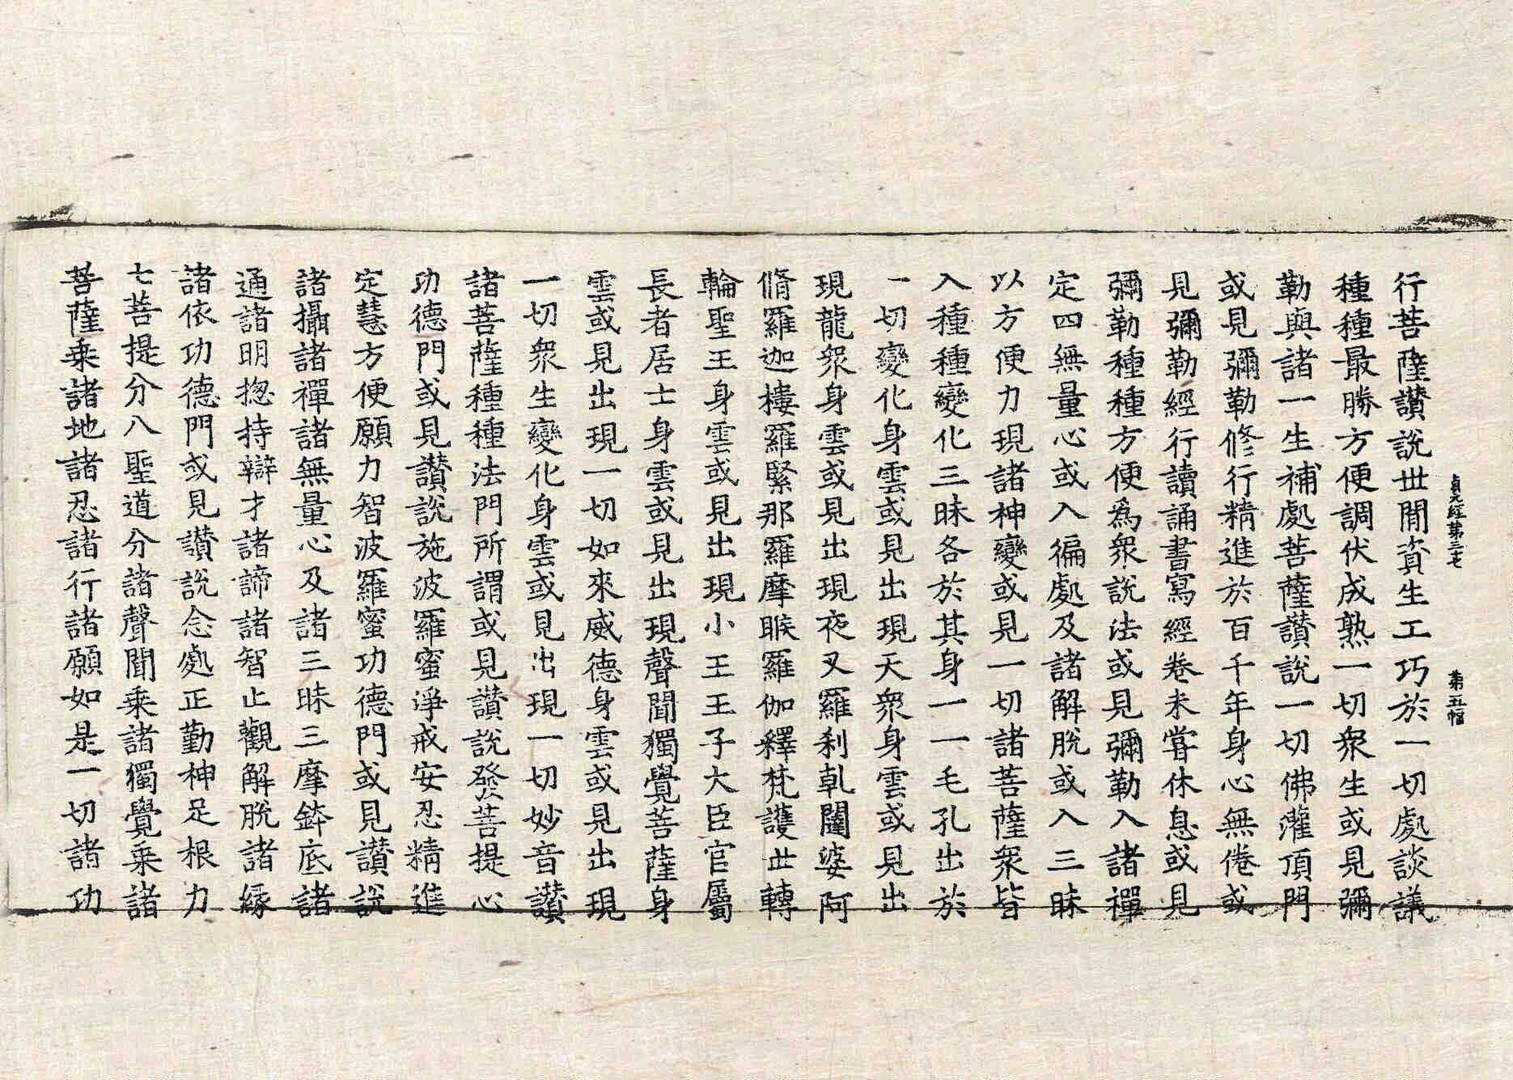 貞元經第三七　第五幅
行菩薩讃說世間資生工巧於一切處談議
種種最勝方便調伏成熟一切衆生或見彌
勒與諸一生補處菩薩讃說一切佛灌頂門
或見彌勒修行精進於百千年身心無倦或
見彌勒經行讀誦書寫經卷未甞休息或見
彌勒種種方便爲衆說法或見彌勒入諸禪
定四無量心或入徧處及諸解脫或入三昧
以方便力現諸神變或見一切諸菩薩衆皆
入種種變化三昧各於其身一一毛孔出於
一切變化身雲或見出現天衆身雲或見出
現龍衆身雲或見出現夜叉羅刹乹闥婆阿
脩羅迦樓羅緊那羅摩睺羅伽釋梵護世轉
輪聖王身雲或見出現小王王子大臣官屬
長者居士身雲或見出現聲聞獨覺菩薩身
雲或見出現一切如來威德身雲或見出現
一切衆生變化身雲或見出現一切妙音讃
諸菩薩種種法門所謂或見讃說發菩提心
功德門或見讃說施波羅蜜淨戒安忍精進
定慧方便願力智波羅蜜功德門或見讃說
諸攝諸禪諸無量心及諸三昧三摩鉢底諸
通諸明揔持辯才諸諦諸智止觀解脫諸緣
諸依功德門或見讃說念處正勤神足根力
七菩提分八聖道分諸聲聞乘諸獨覺乘諸
菩薩乘諸地諸忍諸行諸願如是一切諸功